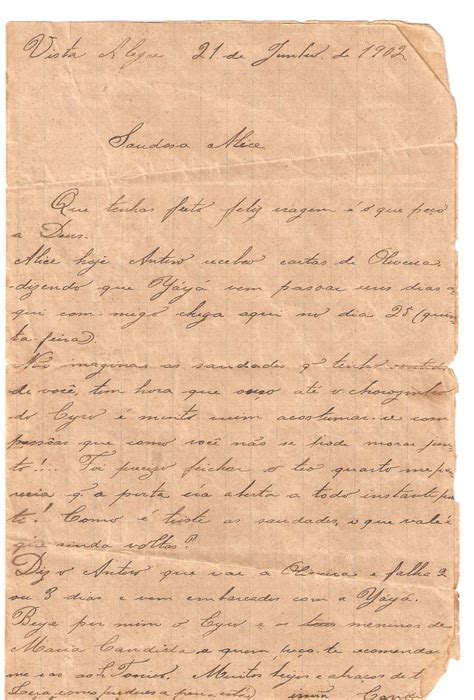 Vista Alegre 21 de Junho de 1902
Saudosa Alice
Que tenhas feito feliz viagem é o que peço
a Deus.
Alice hoje Antero recebeo cartas de Oliveira,
dizendo que Yáyá vem passar uns dias a
qui com migo chega aqui no dia 25 (quin
ta-feira)
Não imaginas as saudades q' tenho
de você, tem hora que ouço até o chorozinho
do Cyro é muito ruim acostumar-se com
pessôas que como você não se pode morar jun
to!... Foi precizo feichar o teo quarto me pa
recia q' a porta éra aberta a todo instante por
ti! Como é triste as saudades, o que vale é
que ainda voltas!
Diz o Antero que vae a Oliveira e falha 2
ou 3 dias e vem embarcados com a Yáyá.
Beije por mim o Cyro e os meninos de
Maria Candida, a quem, peço, te recomenda
me e ao Tonico. Muitos beijos e abraços de t